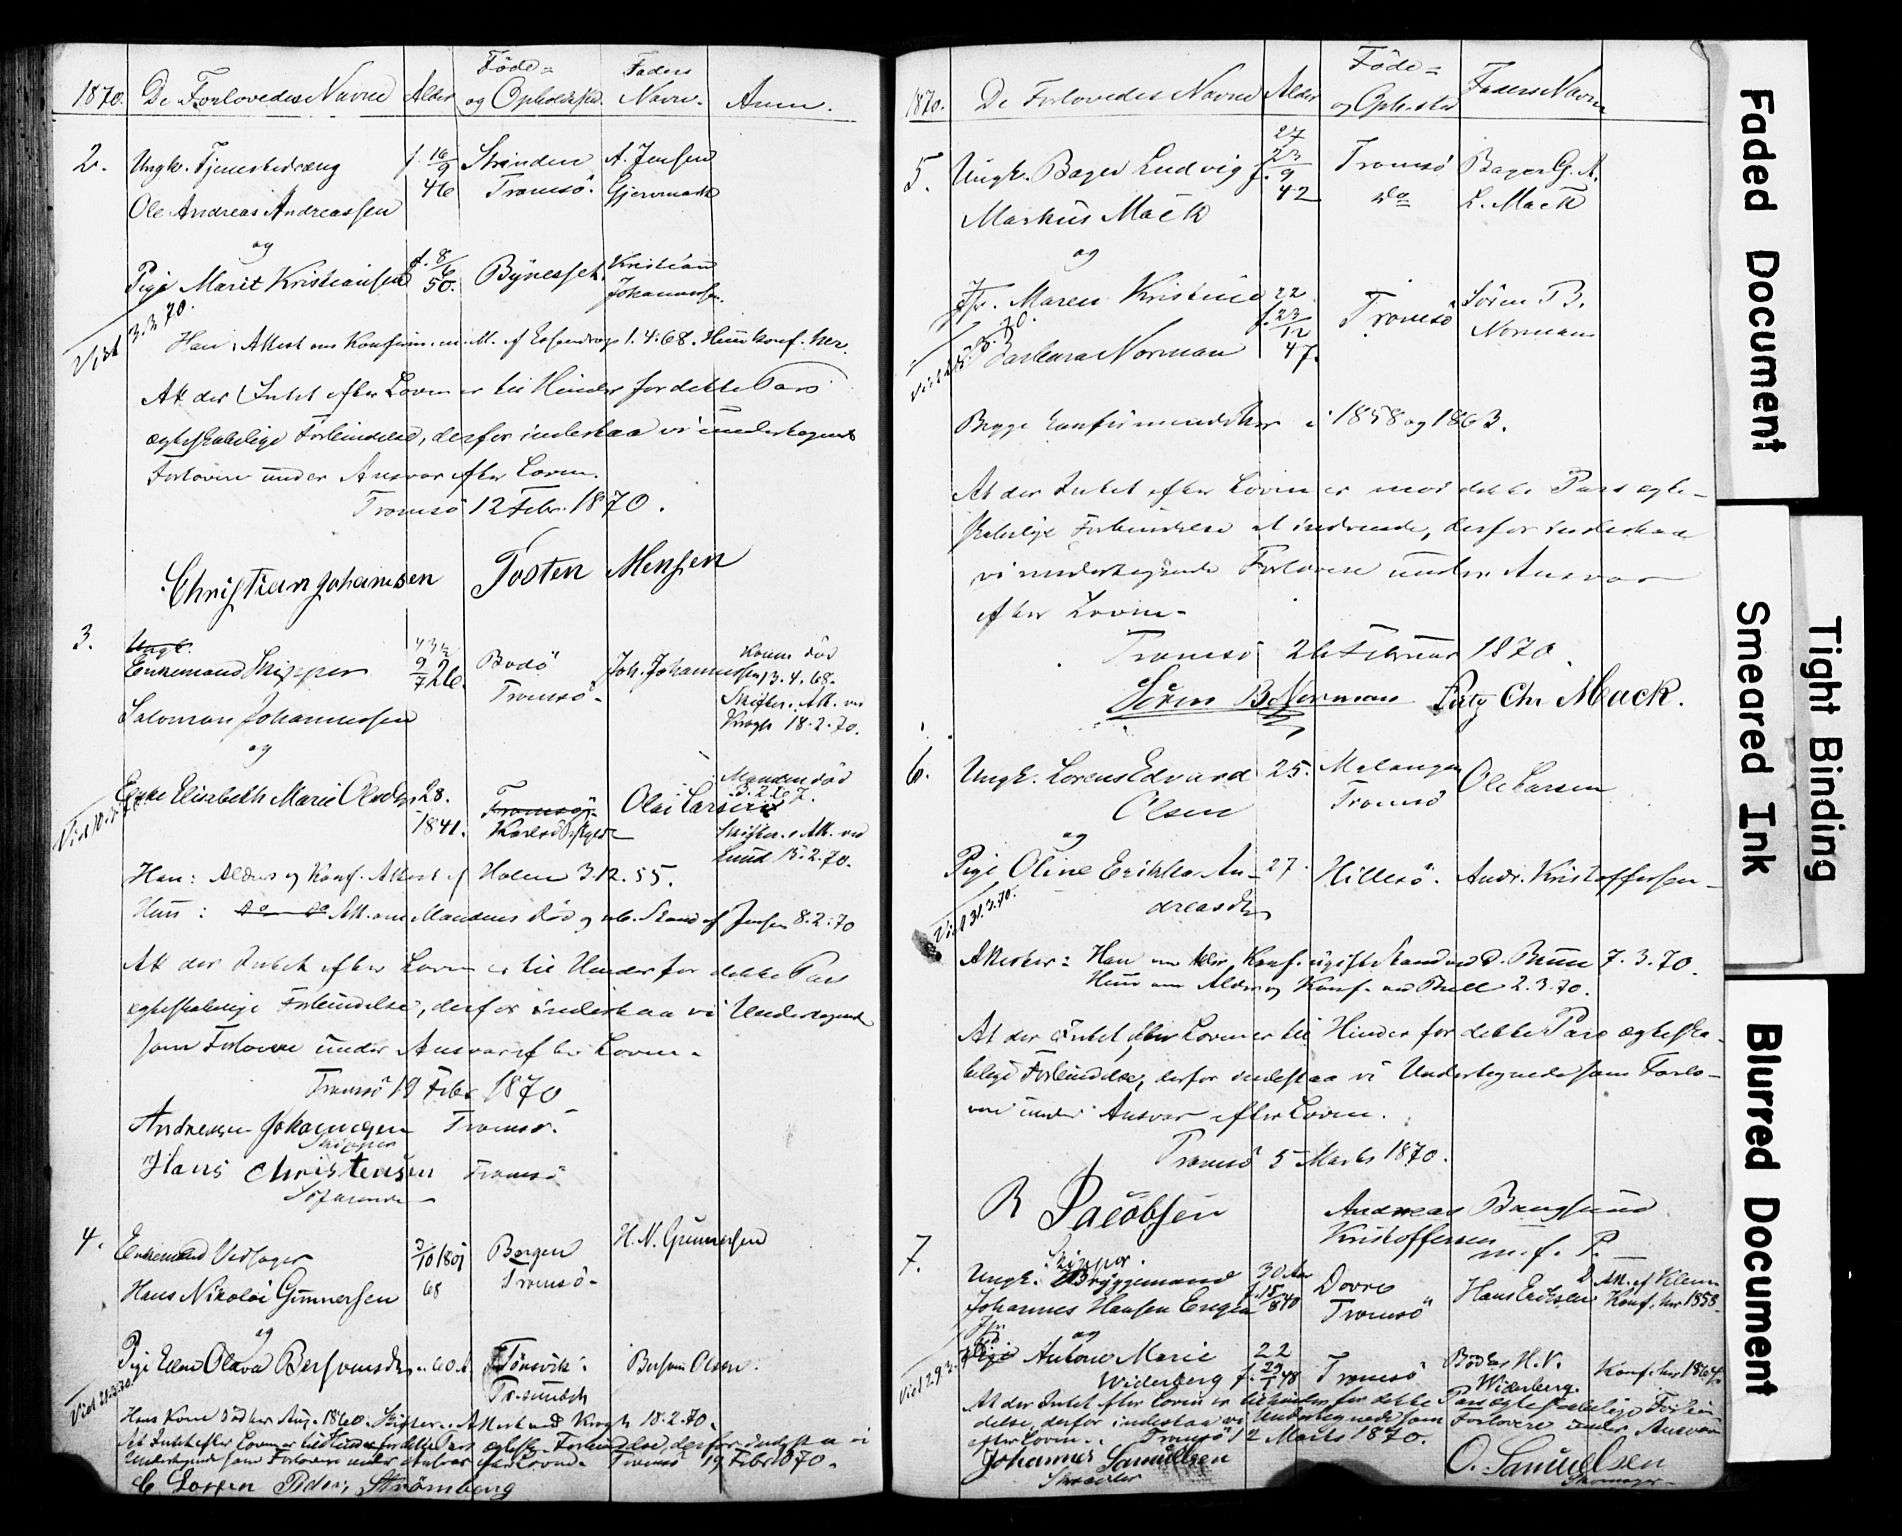 1870. De Forlovedes Navne Alder Føde= og Opholdssted. Faders Navn. Anm.
2. Ungk. Tjenestedreng f. 16/9 46 Strinden A. Jensen
Ole Andreas Andreassen Tromsö. Gjervmark
og
Pige Marit Kristiansen f. 8/6 50. Bynesset. Kristian Johannessen.
Viet 3.3.70.
Han: Attest om Konfirm. 1.4.68. Hun konf. her.
At der Intet efter Loven er til Hinder for dette Pars
ægteskabelige Forbindelse, derfor indestaa vi undertegnede
Forlovere under Ansvar efter Loven.
Tromsö 12 Febr. 1870.
Christian Johansen Tosten Mensen
3. Ungk.
Enkemand Skipper 43 1/2 9/7 26. Bodö Joh. Johannessen Konen död 13.4.68.
Salomon Johannessen Tromsö. Skifter. Att. ved Krogh 18.2.70.
og
Enke Elisabeth Marie Olsdtr 28. Tromsö Olai Larsen Manden död 3.2.67.
1841. Karlsö Skifter. Att. ved Lund 15.2.70.
Han: Alders og Konf. Attest af Holm 3.12.55.
Hun: do do Att. om Mandens död og Stand af Jensen 8.2.70
At der Intet efter Loven er til Hinder for dette Pars
ægteskabelige Forbindelse, derfor indestaa vi Undertegnede
som Forlovere under Ansvar efter Loven.
Tromsö 19 Febr 1870
Andreas Johannesen Tromsö.
Skipper
Hans Christensen Tromsö
Söfarende
4. Enkemand Vedsager 3/10 1801 Bergen H. N. Gunnersen
Hans Nikolai Gunnersen 68 Tromsö.
og
Pige Ellen Olava Bersvensdtr 40 A. Tönsvik. Bersven Olsen.
Tr. sundet
Hans Kone död her Aug. 1860. Skifter. Attest ved Krogh 18.2.70.
At Intet efter Loven er til Hinder for dette Pars ægtesk. Forbindelse, derfor indestaa vi
Undertegnede som Forlovere under Ansvar efter Loven. Tromsö 19 Febr 1870.
C Lossen Peder Strömberg
1870. De Forlovedes Navne Alder Føde= og Oph.sted Faders Navn
5. Ungk. Bager Ludvig 27 f. 23/9 42 Tromsö Bager G. A.
Markus Mack do L. Mack
og
Jfr. Maren Kristine 22 f. 23/12 47. Tromsö Sören B.
Barbara Norman Norman
Begge konfirmerede her i 1858 og 1863.
At der Intet efter Loven er mod dette Pars ægte-
skabelige Forbindelse at indvende, derfor indestaa
vi undertegnede Forlovere under Ansvar
efter Loven.
Tromsö 26 Februar 1870.
Sören B Norman Fritz Chr Mack.
6. Ungk. Lorens Edvard 25. Malangen Ole Larsen
Olsen Tromsö
og
Pige Oline Erikka An- 27. Hillesö. Andr. Kristoffersen
dreasdtr
Viet 31.3.70.
Attester: Han om Alder, Konf. ugifte Stand ved D. Bruun 7.3.70.
Hun om Alder og Konf. ved Bull 2.3.70.
At der Intet efter Loven er til Hinder for dette Pars ægteska-
belige Forbindelse, derfor indestaa vi Undertegnede som Forlo-
vere under Ansvar efter Loven.
Tromsö 5 Marts 1870.
R Jacobsen Andreas Bangsund
Kristoffersen m. f. P.
7. Skipper.
Ungk. Bryggemand 30 Aar Dovre Hans Eriksen Att. af Klem
Johannes Hansen Engen f. 15/8 40 Tromsö Konf. her 1858
Jfr. og
Pige Antone Marie 22 Tromsö Bödker H. V. Konf. her 1864.
Widerberg f. 29/1 48 Widerberg.
At der Intet efter Loven er til Hinder for dette Pars ægteskabelige Forbin
delse, derfor indestaa vi Undertegnede som Forlovere under Ansvar
efter Loven. Tromsö 12 Marts 1870.
Johannes Samuelsen O. Samuelsen
Skrædder Skomager
Faded Document
Tight Binding
Smeared Ink
Blurred Document